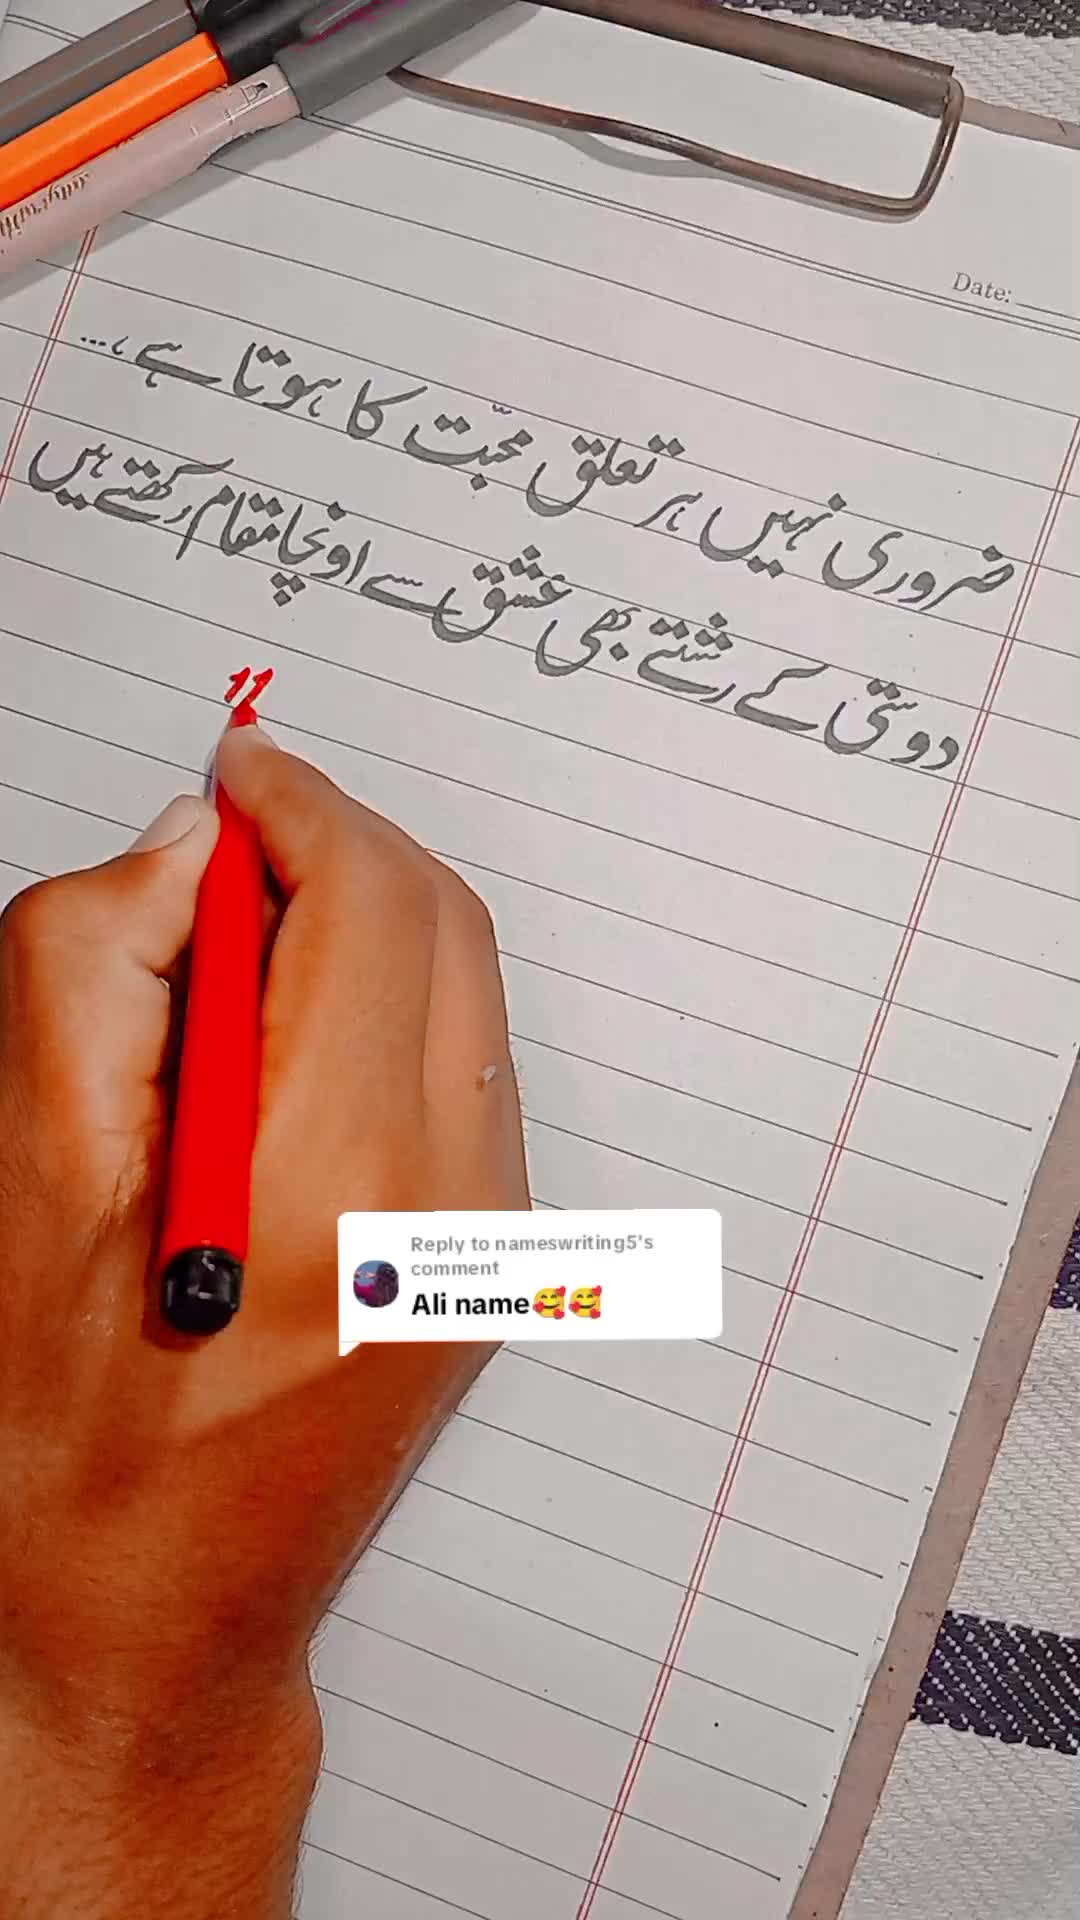 Date:
ضروری نہیں ہر تعلق محبّت کا ہوتا ہے ،...
دوستی کے رشتے بھی عشق سے اونچا مقام رکھتے ہیں
"
Reply to nameswriting5's
comment
Ali name🥰🥰